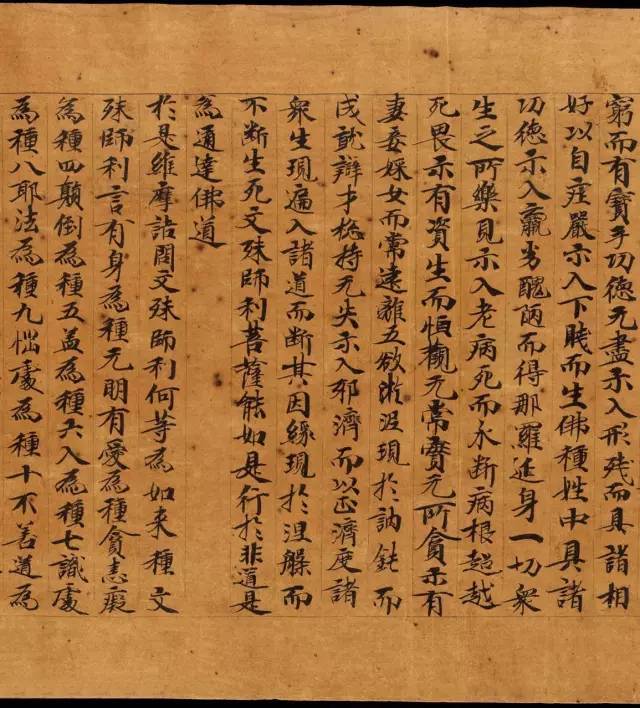 窮而有寶手功德无盡示入形残而具諸相
好以自疰嚴示入下賎而生佛種姓中具諸
功德示入羸劣醜陋而得那羅延身一切衆
生之所樂見示入老病死而永断病根超越
死畏示有資生而恒觀无常實无所貪示有
妻妾婇女而常遠離五欲淤泥現於訥鈍而
成就辯才捴持无失示入邪濟而以正濟度諸
衆生現遍入諸道而断其因緣現於涅槃而
不断生死文殊師利菩薩能如是行於非道是
為通達佛道
於是維摩詰問文殊師利何等為如来種文
殊師利言有身為種无明有愛為種貪恚癡
為種四顛倒為種五盖為種六入為種七識處
為種八耶法為種九惱處為種十不善道為